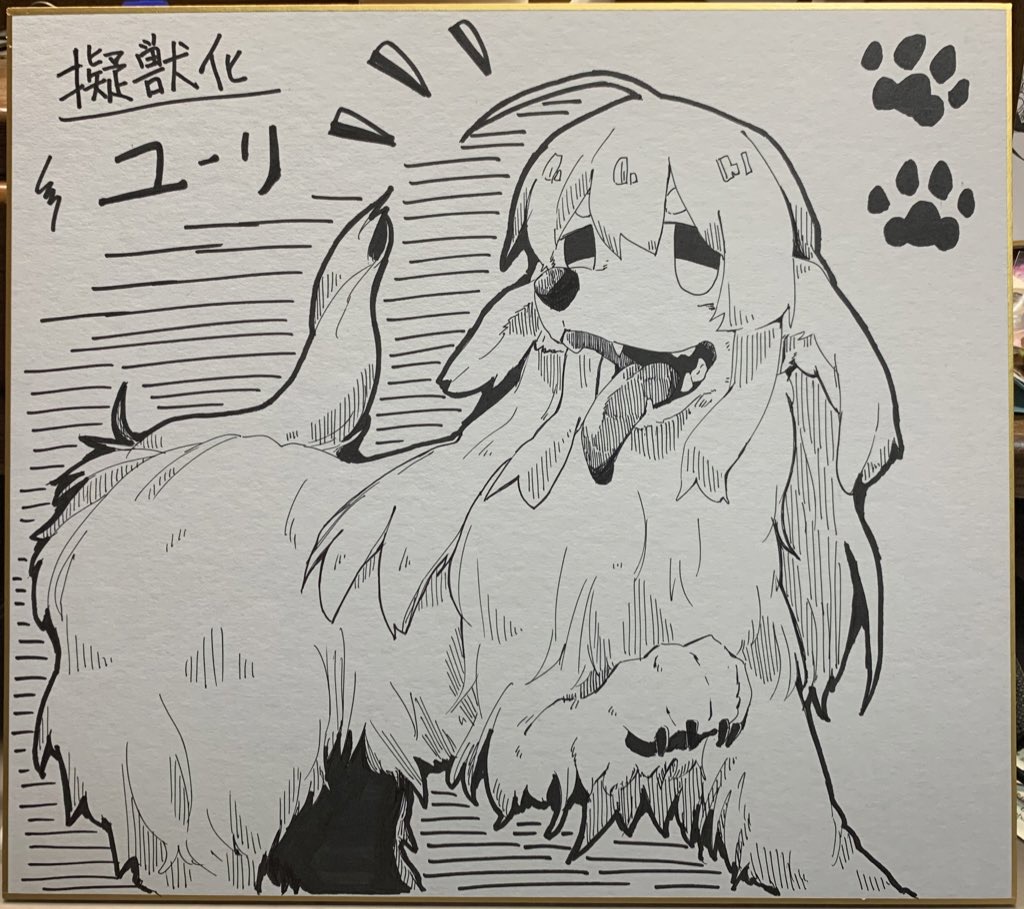 擬獣化
ユーリ